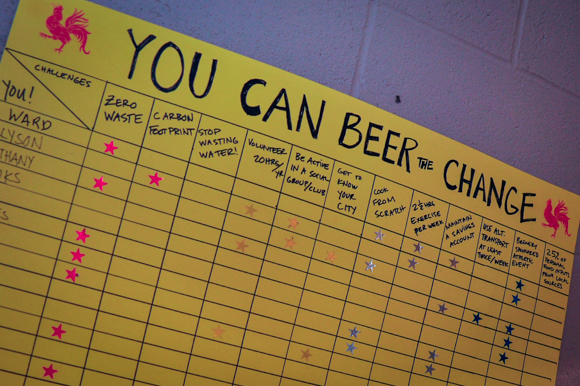 YOU CAN BEER THE CHANGE
CHALLENGES
YOU!
ZERO
WASTE
CARBON
FOOTPRINT
STOP
WASTING
WATER!
VOLUNTEER
20HRS/
YR
BE ACTIVE
IN A SOCIAL
GROUP/CLUB
GET TO
KNOW
YOUR
CITY
COOK
FROM
SCRATCH
2½ HRS
EXERCISE
PER WEEK
MAINTAIN
A SAVINGS
ACCOUNT
USE ALT.
TRANSPORT
AT LEAST
TWICE/WEEK
BREWERY
SPONSORED
ATHLETIC
EVENT
25% OF
PERSONAL
FOOD
FROM LOCAL
SOURCES
WARD
LYSON
THANY
OKS